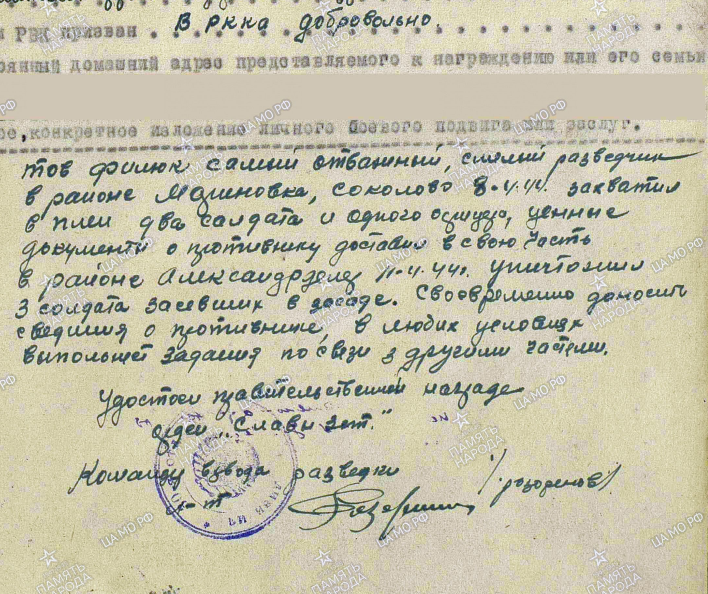 В РККА добровольно.
РВК призван
домашний адрес представляемого к награждению или его семьи
конкретное изложение личного боевого подвига или заслуг.
тов Филюк самый отважный, смелый разведчик
в районе соколово 8-4.44. захватил
в плен два салдата и одного офицера, ценные
документи о противнику доставил в свою часть
в районе 11-4.44г. уничтожил
3 солдата засевших в засаде. Своевременно доносить
сведения о противнике, в любих условиях
выполняет задания по связи з другими частями.
Удостоен правительственной награде
"Славы 3 ст."
Командир взвода разведки
л-т
ЦАМО.РФ
ПАМЯТЬ НАРОДА